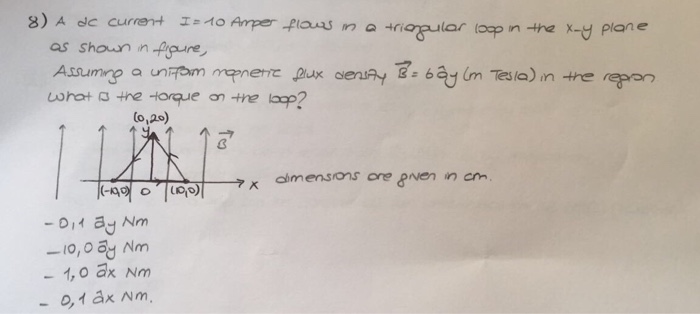 8) A dc current I=10 Amper flows in a triangular loop in the x-y plane
as shown in figure,
Assuming a uniform magnetic flux density B⃗ = 6 ây (m Tesla) in the region
what is the torque on the loop?
(0,20)
y
B⃗
(-10,0) 0 (10,0) x dimensions are given in cm.
- 0,1  āy Nm
- 10,0 āy Nm
- 1,0 āx Nm
- 0,1 âx Nm.